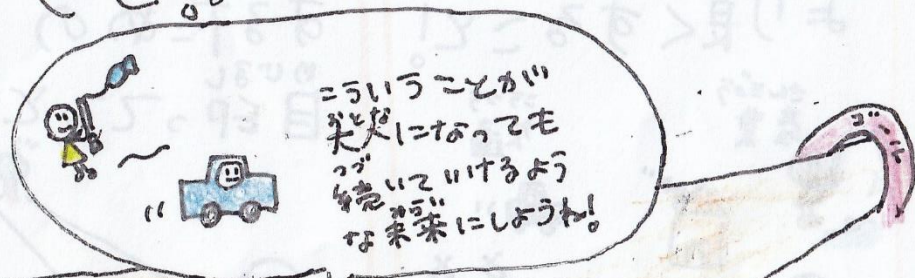 こういうことが
おとな
大人になっても
つづ
続いていけるよう
みらい
な未来にしようね!
ゴール